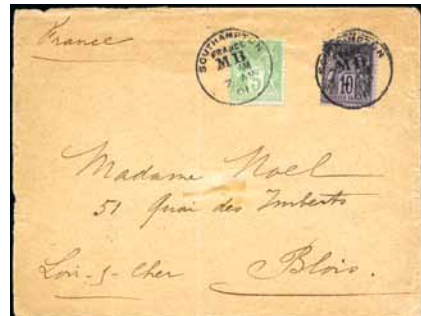 France
SOUTHAMPTON
FRANCE
M.B.
5
M.B.
10
Madame Noel
51 Quai des Imberts
Loir-s-Cher
Blois.